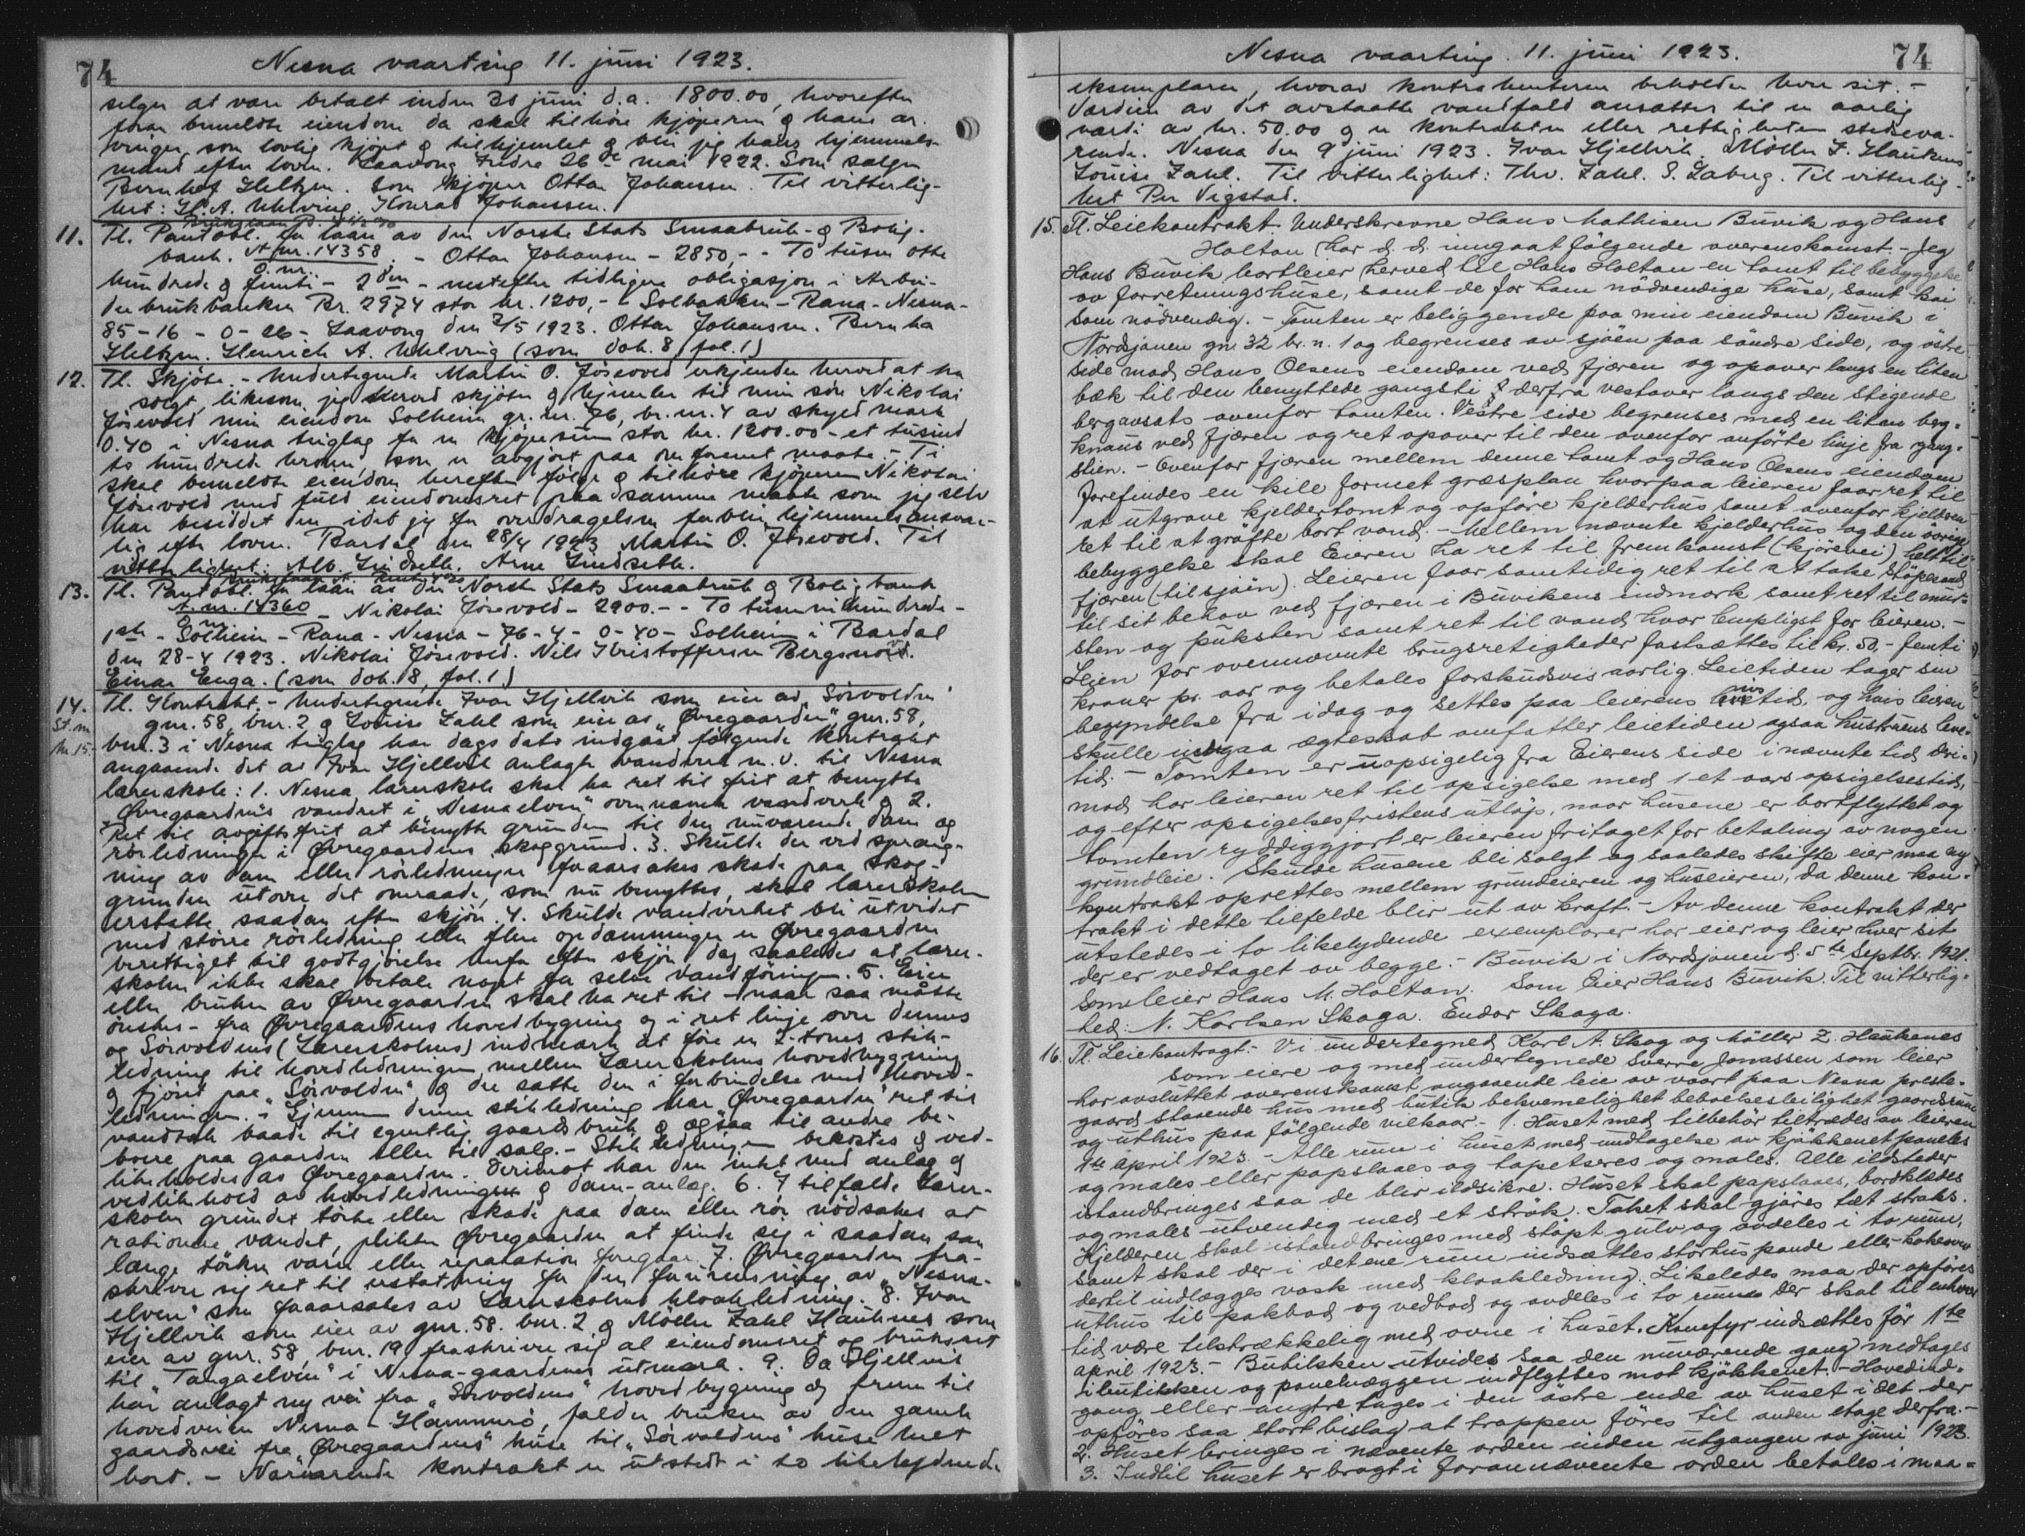 74
Nesna vaarting 11. juni 1923.
selger at være betalt inden 30 juni d.a. 1800.00, hvorefter
foran bemeldte eiendom da skal tilhöre kjöperen & hans ar-
vinger som lovlig kjöpt & tilhjemlet & blir jeg hans hjemmels-
mand efter loven. Laavong Indre 26de mai 1922. Som sælger
Bernhof Helksen. Som kjöper Ottar Johansen. Til vitterlig-
het: H. A. Uhlving. Konrad Johansen.
11. Tl. Pantobl. for laan av den Norske Stats Smaabruk- & Bolig-
bank. A. nr. 14358. - Ottar Johansen - 2850,- - To tusen otte
hundrede & femti - 2den - nestefter tidligere obligasjon i Arbei-
derbrukbanken Nr. 2974 stor kr. 1200,- - Solbakken - Rana - Nesna -
85 - 16 - 0 - 26 - Laavong den 2/5 1923. Ottar Johansen.
Henrich A. Uhlving (som dok. 8, fol. 1)
12. Tl. Skjöte. - Undertegnede Martin O. Jösevold erkjender herved at ha
solgt, likesom jeg herved skjöter & hjemler til min sön Nikolai
Jösevold min eiendom Solheim gr. nr. 76, br. nr. 4 av skyld mark
0.40 i Nesna tinglag for en kjöpesum stor kr. 1200.00 - et tusind
to hundrede kroner, som er avgjort paa omforenet maate. - Ti
skal bemeldte eiendom herefter fölge & tilhöre kjöperen Nikolai
Jösevold med fuld eiendomsret paa samme maate som jeg selv
har besiddet den idet jeg for overdragelsen forblir hjemmelsansvar-
lig efter loven. Bardal den 28/4 1923. Martin O. Jösevold. Til
vitterlighet: Alb. Lindseth. Arne Lindseth.
13. Tl. Pantobl. for laan av Den Norske Stats Smaabruk & Boligbank
A. nr. 14360 - Nikolai Jösevold - 2900.- - To tusen nihundrede -
1ste - Solheim - Rana - Nesna - 76 - 4 - 0 - 40 - Solheim i Bardal
den 28-4 1923. Nikolai Jösevold. Nils Kristoffersen Bergsnov.
Einar Enga. (som dok. 8, fol. 1)
14. Tl. Kontrakt. - Undertegnede Ivar Hjellvik som eier av „Sörvolden“
gnr. 58, bnr. 2 & Louise Zahl som eier av „Övregaarden“, gnr. 58,
St. m.
nr. 15.
bnr. 3 i Nesna tinglag har dags dato indgaat fölgende kontrakt
angaaende det av Ivar Hjellvik anlagte vandverk m.v. til Nesna
lærerskole: 1. Nesna lærerskole skal ha ret til frit at benytte
„Övregaardens vandret i Nesnaelven“ ovennævnte vandverk & 2.
Ret til avgiftsfrit at benytte grunden til den nuværende dam og
rörledninger i Övregaardens skoggrund. 3. Skulde der ved spræng-
ning av dam eller rörledninger foraarsakes skade paa skog-
grunden utover det omraade, som nu benyttes, skal lærerskolen
erstatte saadan efter skjön. 4. Skulde vandverket bli utvidet
med större rörledning eller flere opdæmninger er Övregaarden
berettiget til godtgjörelse herfor efter skjön, dog saaledes at lærer-
skolen ikke skal betale noget for selve vandföringen. 5. Eier
eller bruker av Övregaarden skal ha ret til - naar saa maatte
önskes - fra Övregaardens hovedbygning og i ret linje over dennes
og Sörvoldens (Lærerskolens) indmark at före en 2-toms stik-
ledning til hovedledningen mellem Lærerskolens hovedbygning
& fjöset paa „Sörvolden“ & der sætte den i forbindelse med hoved-
ledningen. - Gjennem denne stikledning har „Övregaarden“ ret til
vandtak baade til egentlig gaardsbruk & ogsaa til andre be-
boere paa gaarden eller til salg. - Stikledningen bekostes & ved-
likeholdes av Övregaarden. Derimot har den intet med anlæg og
vedlikehold av hovedledningen & dam-anlæg. 6. I tilfælde Lærer-
skolen grundet törke eller skade paa dam eller rör nödsakes at
rationere vandet, plikter Övregaarden at finde sig i saadan saa
længe törken varer eller reparation foregaar. 7. Övregaarden fra-
skriver sig ret til erstatning for den forurensning av „Nesna-
elven“ som foraarsakes av Lærerskolens kloakledning. 8. Ivar
Hjellvik som eier av gnr. 58. bnr. 2 & Möller Zahl Hauknes som
eier av gnr. 58, bnr. 19 fraskriver sig al eiendomsret og bruksret
til „Tangaelven“ i Nesna-gaardenes utmark. 9. Da Hjellvik
har anlagt ny vei fra „Sörvoldens“ hovedbygning & frem til
hovedveien Nesna - Hammerö, falder bruken av den gamle
gaardsvei fra „Övregaardens“ huse til „Sörvoldens“ huse helt
bort. - Nærværende kontrakt er utstedt i to likelydende
74
Nesna vaarting. 11. juni 1923.
eksemplarer, hvorav kontrahenterne beholder hver sit. -
Værdien av det avstaatte vandfald ansættes til en aarlig
værdi av kr. 50.00 & er kontrakten eller rettigheten stedseva-
rende. Nesna den 9 juni 1923. Ivar Hjellvik. Möller Z. Hauknes
Louise Zahl. Til vitterlighet: Thv. Zahl. S. Zaberg. Til vitterlig-
het Per Vigstad.
15. Tl. Leiekontrakt. Underskrevne Hans Mathisen Buvik og Hans
Holtan har d. d. inngaat fölgende overenskomst - Jeg
Hans Buvik bortleier herved til Hans Holtan en tomt til bebyggelse
av forretningshuse, samt de for ham nödvendige huse, samt kai
som nodvendig. - Tomten er beliggende paa min eiendom Buvik i
Nordsjonen gnr. 32 br. n. 1 og begrenses av sjöen paa söndre side, og östre
side mod Hans Olsens eiendom ved fjæren og opover langs en liten
bæk til den benyttede gangsti & derfra vestover langs den stigende
bergavsats ovenfor tomten. Vestre side begrenses med en liten berg-
knaus ved fjæren og ret opover til den ovenfor anförte linje fra gang-
stien. - Ovenfor fjæren mellem denne tomt og Hans Olsens eiendom
forefindes en kile formet græsplan hvorpaa leieren faar ret til
at utgrave kjeldertomt og opföre kjelderhus samt ovenfor kjelderen
ret til at gröfte bort vand. - Mellem nævnte kjelderhus og den övrige
bebyggelse skal Eieren ha ret til fremkomst (kjörevei) helt til
fjæren (til sjöen). Leieren faar samtidig ret til at take stöpesand
til sit behov ved fjæren i Buvikens indmark samt ret til mur-
sten og puksten samt ret til vand hvor lempligst for leieren. -
Leien for ovennævnte brugsretigheder fastsættes til kr. 50,- femti
kroner pr. aar og betales forskudsvis aarlig. Leietiden tager sin
begyndelse fra idag og settes paa leierens livstid og hvis leieren
skulle indgaa ægteskab omfatter leietiden ogsaa hustruens leve-
tid. - Tomten er uopsigelig fra Eierens side i nævnte tid, der-
mod har leieren ret til opsigelse med 1 et aars opsigelsestid,
og efter opsigelsesfristens utlöp, naar husene er bortflyttet og
tomten ryddiggjort er leieren fritaget for betaling av nogen
grundleie. Skulde husene bli solgt og saaledes skifte eier maa ny
kontrakt oprettes mellem grundeieren og huseieren, da denne kon-
trakt i dette tilfelde blir ut av kraft. - Av denne kontrakt der
utstedes i to likelydende exemplarer har eier og leier hver sit
der er vedtaget av begge. - Buvik i Nordsjonen d. 5te Septbr. 1921.
Som leier Hans M. Holtan. Som Eier Hans Buvik. Til vitterlig-
hed: N. Karlsen Skaga. Endor Skaga.
16. Tl. Leiekontragt. - Vi undertegned Karl A. Skog og Möller Z. Haukenes
som eiere og med undertegnede Sverre Jonassen som leier
har avsluttet overenskomst angaaende leie av vaart paa Nesna preste-
gaard staaende hus med butik bekvemelighet beboelsesleilighet gaardsrum
og uthus paa fölgende vilkaar. - 1. Huset med tilbehör tiltrædes av leieren
1ste April 1923. - Alle rum i huset med undtagelse av kjökkenet paneles
og males eller papslaaes og tapetseres og males. Alle ildsteder
istandbringes saa de blir ildsikre. Huset skal papslaaes, bordklædes
og males utvendig med et strök. Taket skal gjöres tæt straks.
Kjelderen skal istandbringes med stöpt gulv og avdeles i to rum,
samt skal der i det ene rum indsættes storhuspande eller kokeovn
dertil indlægges vask med kloakledning. Likeledes maa der opföres
uthus til pakbod og vedbod og avdeles i to rum. Der skal til enhver
tid være tilstrækkelig med ovne i huset. Komfyr indsættes för 1ste
April 1923. - Butikken utvides saa den nuværende gang medtages
i butikken og panelvæggen indflyttes mot kjökkenet. - Hovedind-
gang eller tages i den östre ende av huset idet der
opföres saa stort bislag at trappen föres til anden etage derfra. -
2. Huset bringes i nævente orden inden utgangen av juni 1923.
3. Indtil huset er bragt i forannævente orden betales i maa-